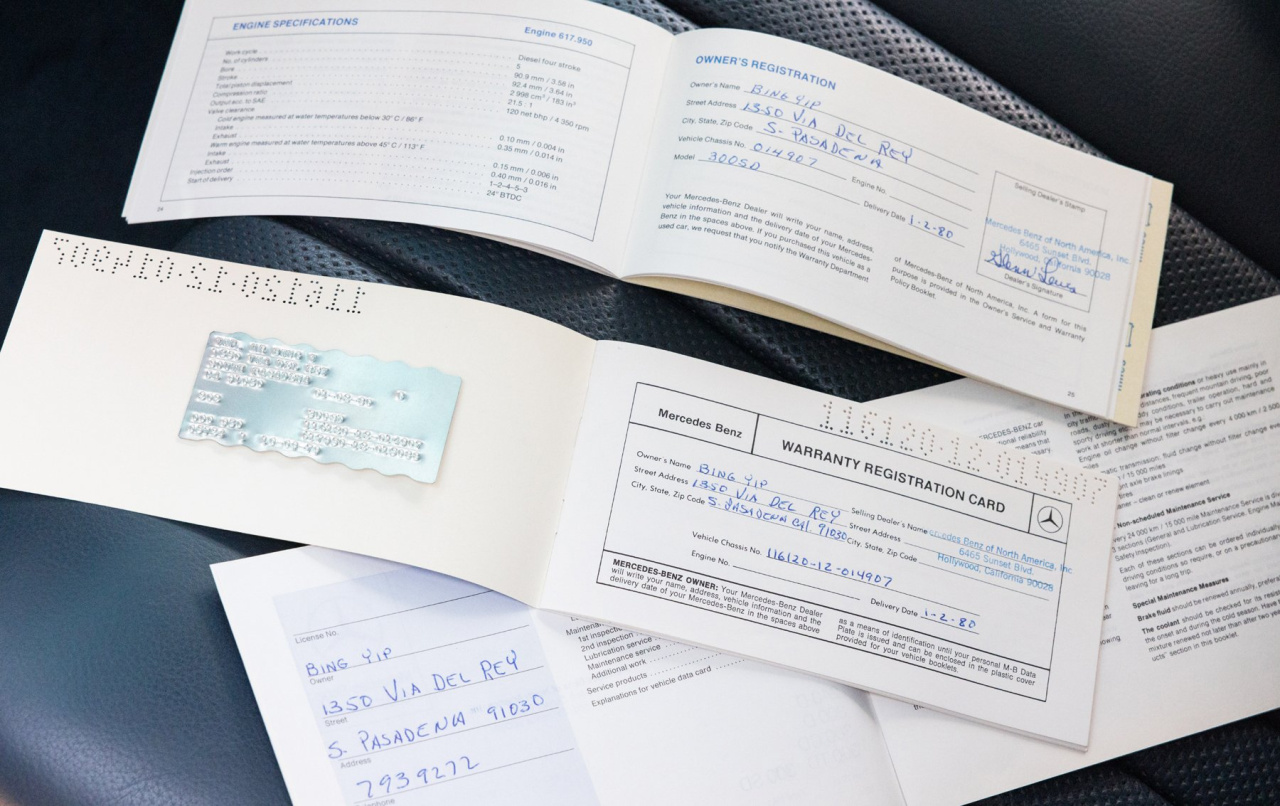 ENGINE SPECIFICATIONS
Engine 617.950
Work cycle Diesel four stroke
No. of cylinders 5
Bore 90.9 mm / 3.58 in
Stroke 92.4 mm / 3.64 in
Total piston displacement 2 998 cm³ / 183 in³
Compression ratio 21.5 : 1
Output acc. to SAE 120 net bhp / 4 350 rpm
Valve clearance
Cold engine measured at water temperatures below 30° C / 86° F
Intake 0.10 mm / 0.004 in
Exhaust 0.35 mm / 0.014 in
Warm engine measured at water temperatures above 45° C / 113° F
Intake 0.15 mm / 0.006 in
Exhaust 0.40 mm / 0.016 in
Injection order 1–2–4–5–3
Start of delivery 24° BTDC
24
OWNER'S REGISTRATION
Owner's Name BING YIP
Street Address 1350 VIA DEL REY
City, State, Zip Code S. PASADENA
Vehicle Chassis No. 014907 Engine No.
Model 300SD Delivery Date 1-2-80
Your Mercedes-Benz Dealer will write your name, address,
vehicle information and the delivery date of your Mercedes-
Benz in the spaces above. If you purchased this vehicle as a
used car, we request that you notify the Warranty Department
of Mercedes-Benz of North America, Inc. A form for this
purpose is provided in the Owner's Service and Warranty
Policy Booklet.
Selling Dealer's Stamp
Mercedes Benz of North America, Inc.
6465 Sunset Blvd.
Hollywood, California 90028
Dealer's Signature
25
116120-12-014907
116120-12-014907
Mercedes Benz
WARRANTY REGISTRATION CARD
Owner's Name BING YIP
Street Address 1350 VIA DEL REY
City, State, Zip Code S. PASADENA CAl. 91030
Selling Dealer's Name
Street Address
City, State, Zip Code
cedes Benz of North America, Inc
6465 Sunset Blvd.
Hollywood, California 90028
Vehicle Chassis No. 116120-12-014907
Engine No. Delivery Date 1-2-80
MERCEDES-BENZ OWNER: Your Mercedes-Benz Dealer
will write your name, address, vehicle information and the
delivery date of your Mercedes-Benz in the spaces above
as a means of identification until your personal M-B Data
Plate is issued and can be enclosed in the plastic cover
provided for your vehicle booklets.
License No.
BING YIP
Owner
1350 VIA DEL REY
Street
S. PASADENA 91030
Address
7939272
1st inspection
2nd inspection
Lubrication service
Maintenance service
Additional work
Service products
Explanations for vehicle data card
rating conditions or heavy use mainly in
distances, frequent mountain driving, poor
be necessary to carry out maintenance
work at shorter than normal intervals, e.g.
Engine oil change without filter change every
matic transmission: fluid change without filter change
/ 15 000 miles
brake linings
– clean or renew element
Non-scheduled Maintenance Service
24 000 km / 15 000 mile Maintenance Service is
sections (General and Lubrication Service, Engine
Safety Inspection).
Each of these sections can be ordered individually
driving conditions so require, or on a precautionary
leaving for a long trip.
Special Maintenance Measures
Brake fluid should be renewed annually,
The coolant should be checked for its
the onset and during the cold season.
mixture renewed not later than after two
ucts" section in this booklet.